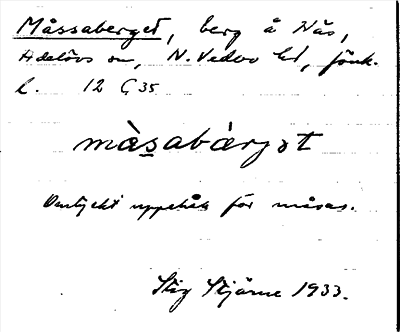 Måssaberget, berg å Nås,
Adelövs sn, N. Vedbo hd, Jönk.
l. 12 G 35
måsabàrgat
Vanligt uppehåll för måsar.
Stig Stjärne 1933.